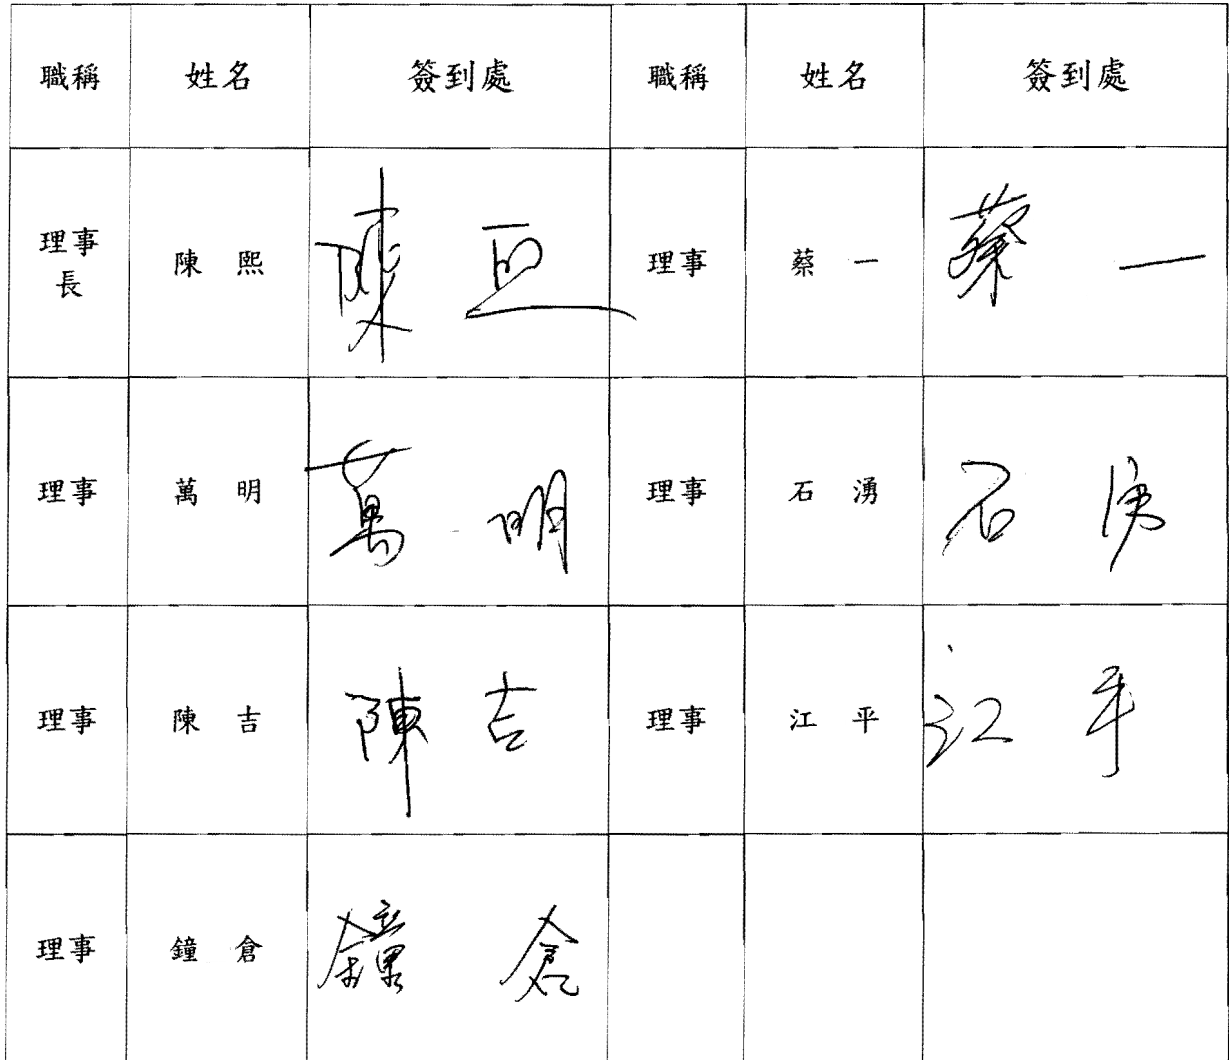 職稱 姓名 簽到處 職稱 姓名 簽到處
理事長 陳 熙 陳 熙 理事 蔡 一 蔡 一
理事 萬 明 萬 明 理事 石 湧 石 湧
理事 陳 吉 陳 吉 理事 江 平 江 平
理事 鐘 倉 鐘 倉